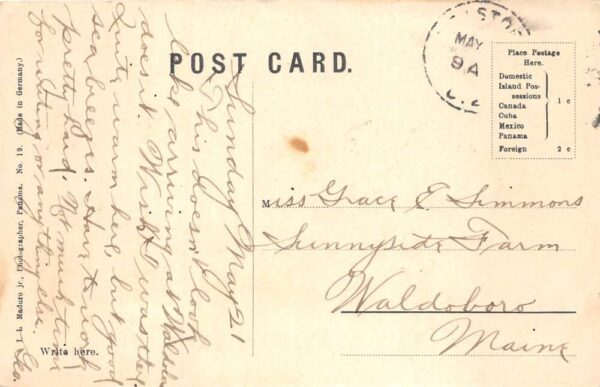 POST CARD.
Place Postage
Here.
Domestic
Island Pos-
sessions
Canada
Cuba
Mexico
Panama
1 c
Foreign 2 c
MAY
9 A
Sunday May 21
This doesn't look
like arriving at Waldo
does it. Wish I was there
Quite warm here, but good
sea breezes. Have to work
pretty hard. Not much time
for writing or anything else.
Geo.
Miss Grace E Simmons
Sunnyside Farm
Waldoboro
Maine
Write here.
I. L. Maduro jr., Photographer, Panama. No. 19. (Made in Germany.)